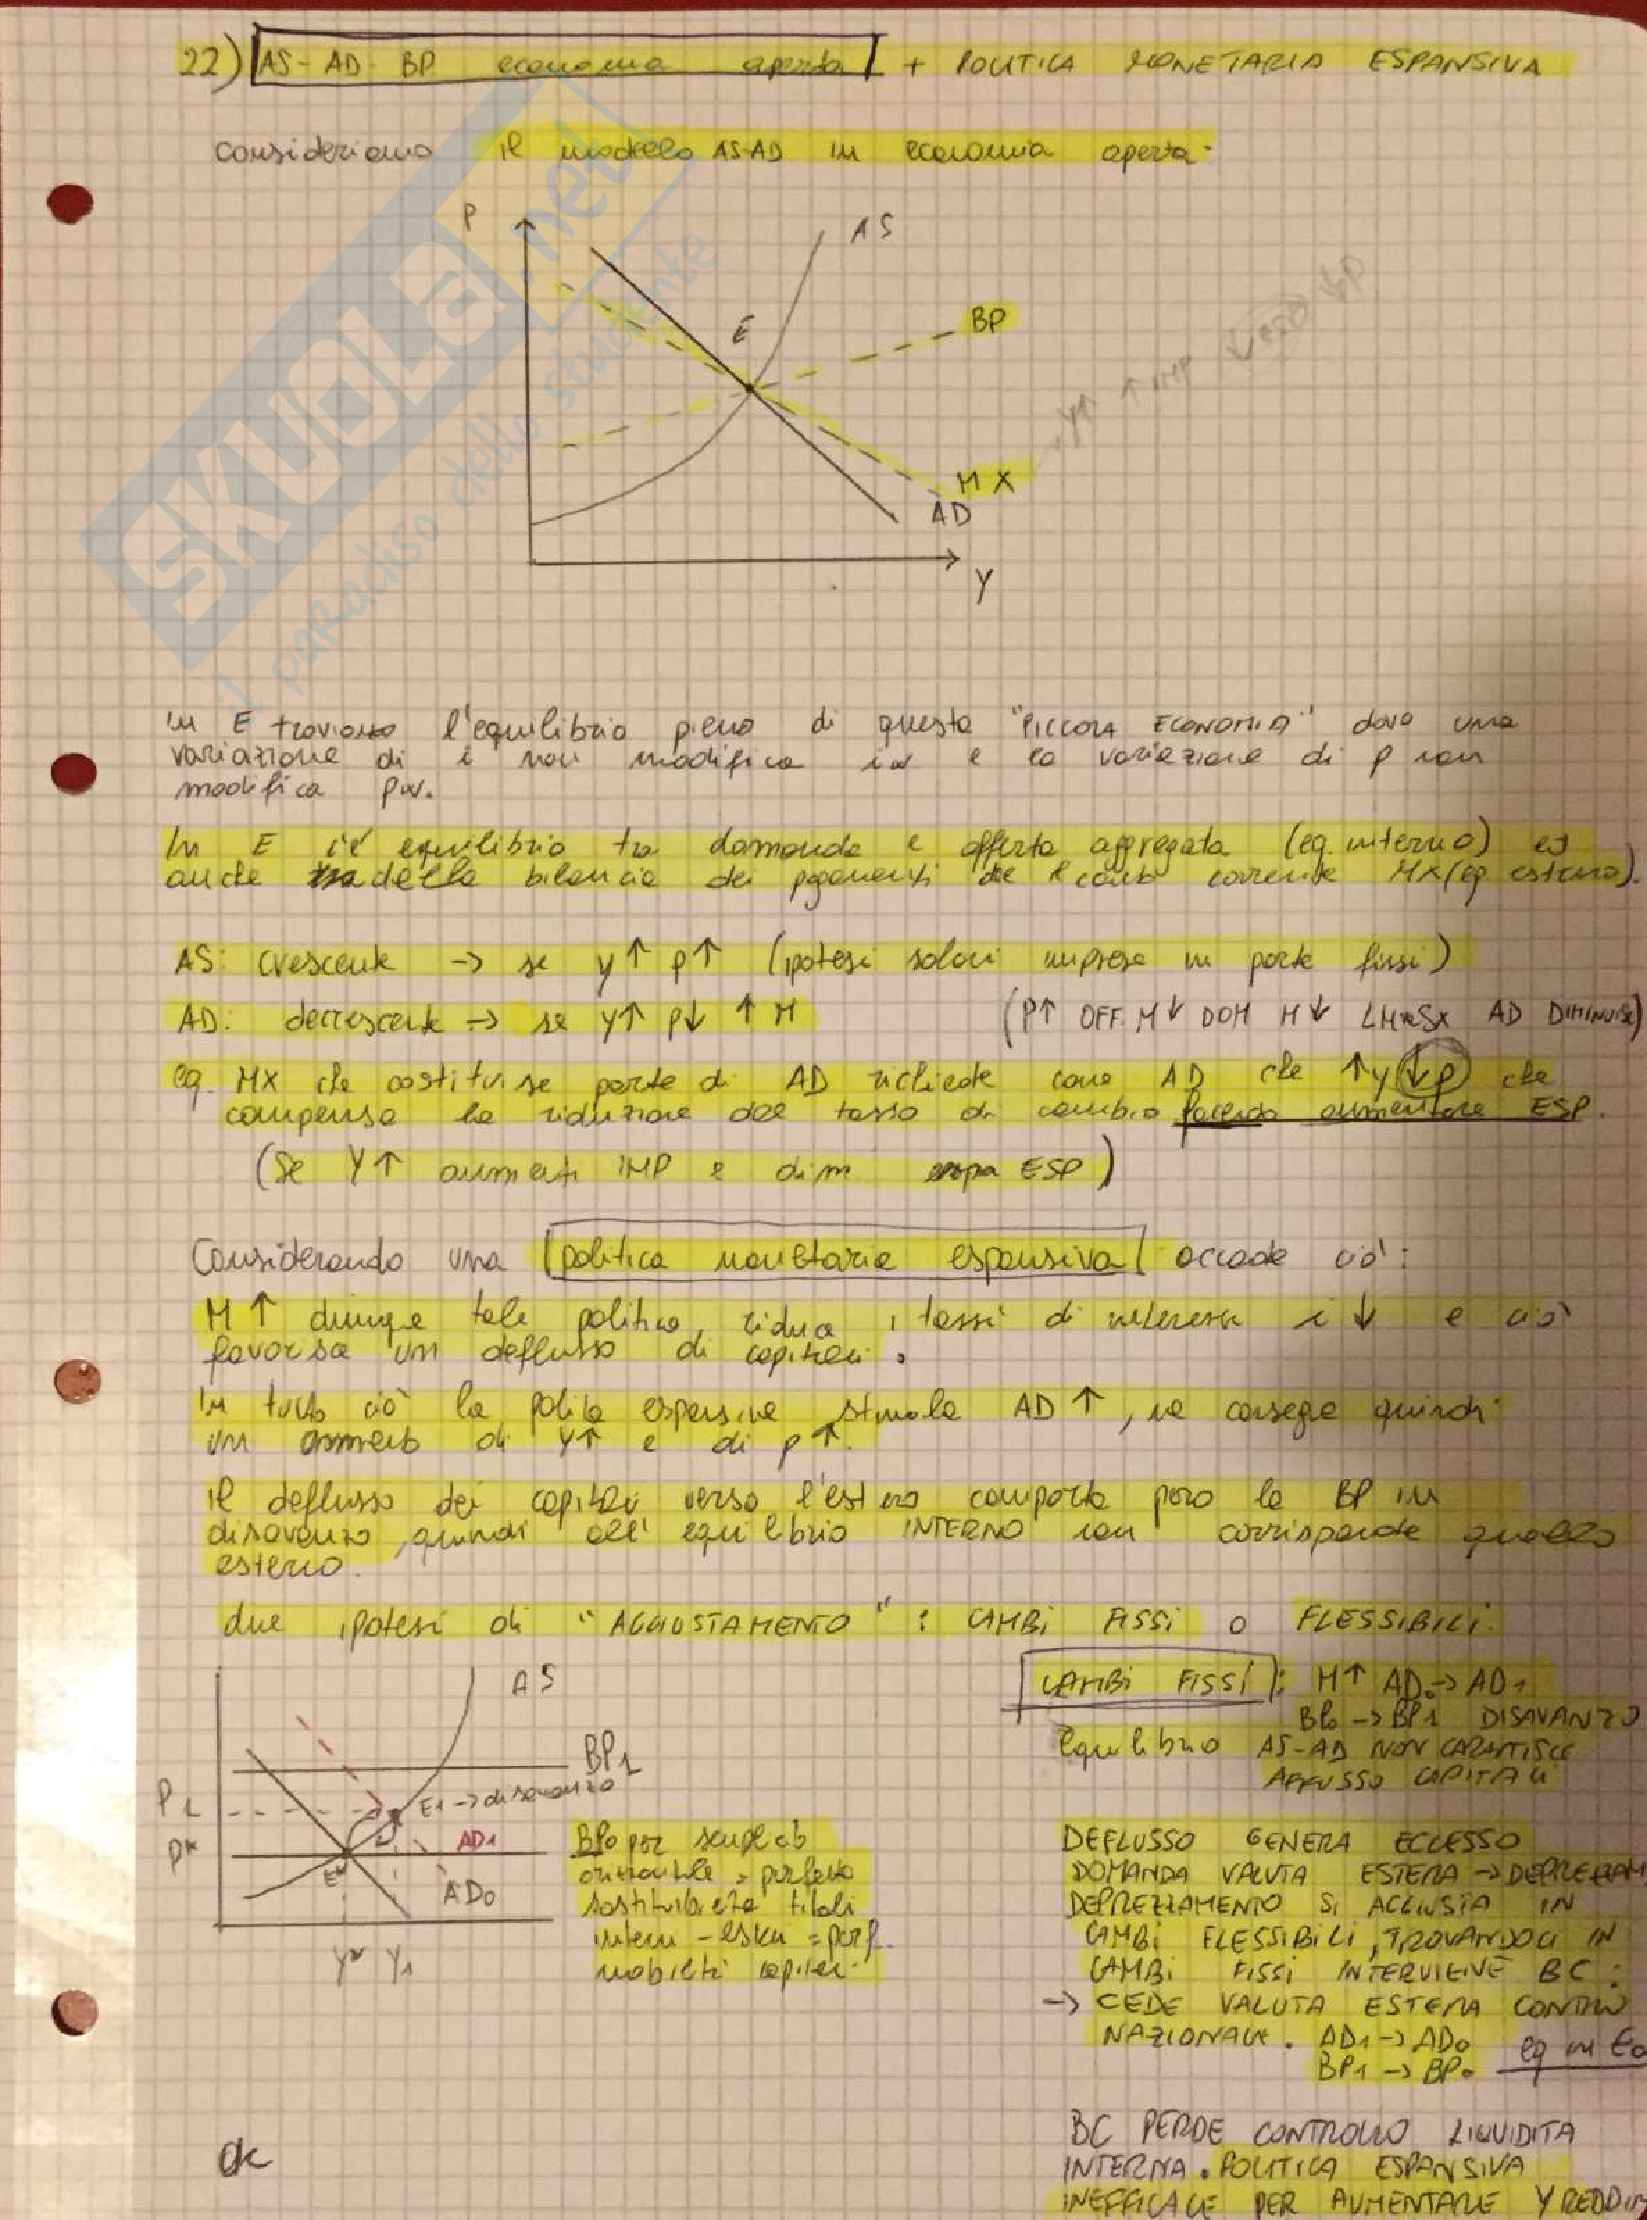 22) AS-AD BP economia aperta + POLITICA MONETARIA ESPANSIVA
consideriamo il modello AS-AD in economia aperta:
SKUOLA.net
il paradiso dello studente
P
AS
E
BP
Y↑ ↑ IMP
MX
AD
Y
in E troviamo l'equilibrio pieno di questa "PICCOLA ECONOMIA" dove una
variazione di i non modifica iw e la variazione di p non
modifica pw.
In E c'è equilibrio tra domanda e offerta aggregata (eq. interno) ed
anche della bilancia dei pagamenti del conto corrente MX (eq esterno).
AS: crescente -> se y↑ p↑ (ipotesi salari imprese in parte fissi)
AD: decrescente -> se Y↑ p↓ ↑M (P↑ OFF. M↓ DOM M↓ LM->SX AD DIMINUISCE)
eq. MX che costituisce parte di AD richiede come AD che ↑y ↓p che
compensa la riduzione del tasso di cambio facendo aumentare ESP.
(se Y↑ aumenti IMP e dim ESP)
Considerando una politica monetaria espansiva accade ciò:
M↑ dunque tale politica riduce i tassi di interesse i↓ e ciò
favorisce un deflusso di capitali.
In tutto ciò la politica espansiva stimola AD↑, ne consegue quindi
un aumento di Y↑ e di p↑.
il deflusso dei capitali verso l'estero comporta però la BP in
disavanzo, quindi all'equilibrio INTERNO non corrisponde quello
esterno.
due ipotesi di "AGGIUSTAMENTO": CAMBI FISSI o FLESSIBILI.
AS
BP1
P1
E1 -> disavanzo
P*
AD1
E*
AD0
Y* Y1
BP0 per semplicità
orizzontale = perfetta
sostituibilità titoli
interni - esteri = perf.
mobilità capitali.
CAMBI FISSI: M↑ AD0 -> AD1
BP0 -> BP1 DISAVANZO
Equilibrio AS-AD NON GARANTISCE
AFFLUSSO CAPITALI
DEFLUSSO GENERA ECCESSO
DOMANDA VALUTA ESTERA -> DEPREZZAM
DEPREZZAMENTO SI AGGIUSTA IN
CAMBI FLESSIBILI, TROVANDOCI IN
CAMBI FISSI INTERVIENE BC:
-> CEDE VALUTA ESTERA CONTRO
NAZIONALE. AD1 -> AD0 eq in E0
BP1 -> BP0
BC PERDE CONTROLLO LIQUIDITA
INTERNA. POLITICA ESPANSIVA
INEFFICACE PER AUMENTARE Y REDDITO
ok